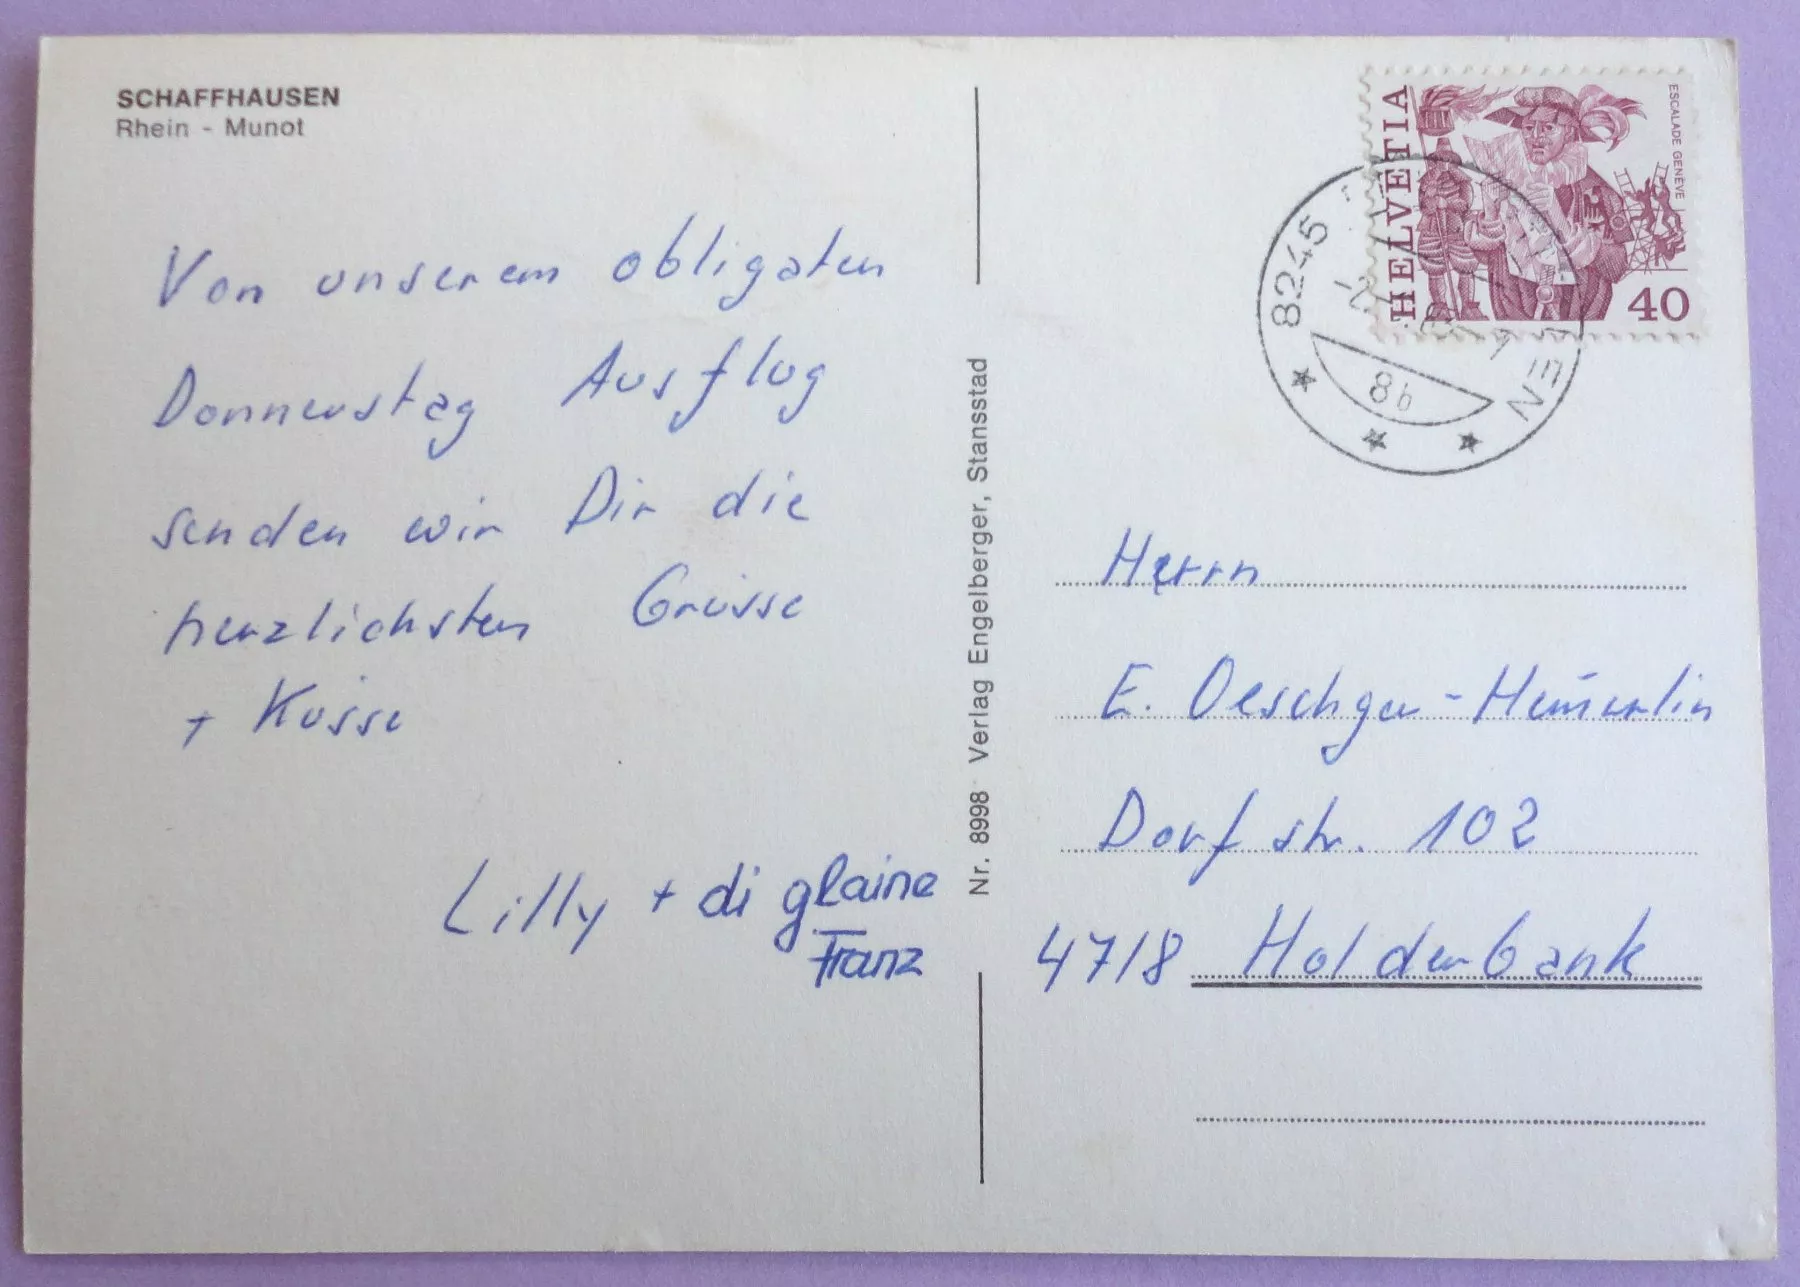 SCHAFFHAUSEN
Rhein - Munot
Von unserem obligaten
Donnerstag Ausflug
senden wir Dir die
herzlichsten Grüsse
+ Küsse
Lilly + di glaine
Franz
Nr. 8998 Verlag Engelberger, Stansstad
HELVETIA
ESCALADE GENÈVE
40
8245
8b
Herrn
E. Oeschger-Hemmerlin
Dorfstr. 102
4718 Holderbank